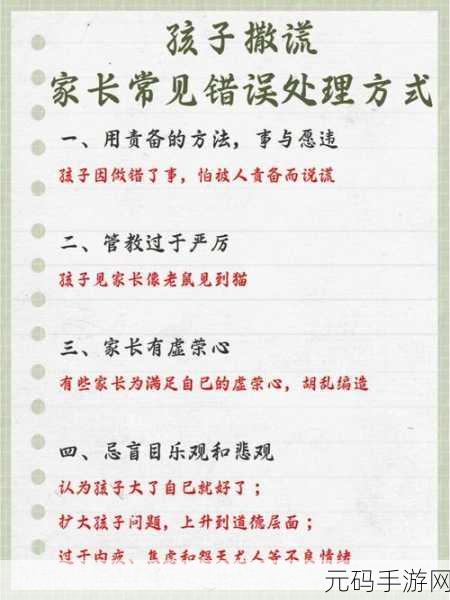 孩子撒谎
家长常见错误处理方式
一、用责备的方法，事与愿违
孩子因做错了事，怕被人责备而说谎
二、管教过于严厉
孩子见家长像老鼠见到猫
三、家长有虚荣心
有些家长为满足自己的虚荣心，胡乱编造
四、忌盲目乐观和悲观
认为孩子大了自己就好了；
扩大孩子问题，上升到道德层面；
过于内疚、焦虑和怨天尤人等不良情绪
元码手游网